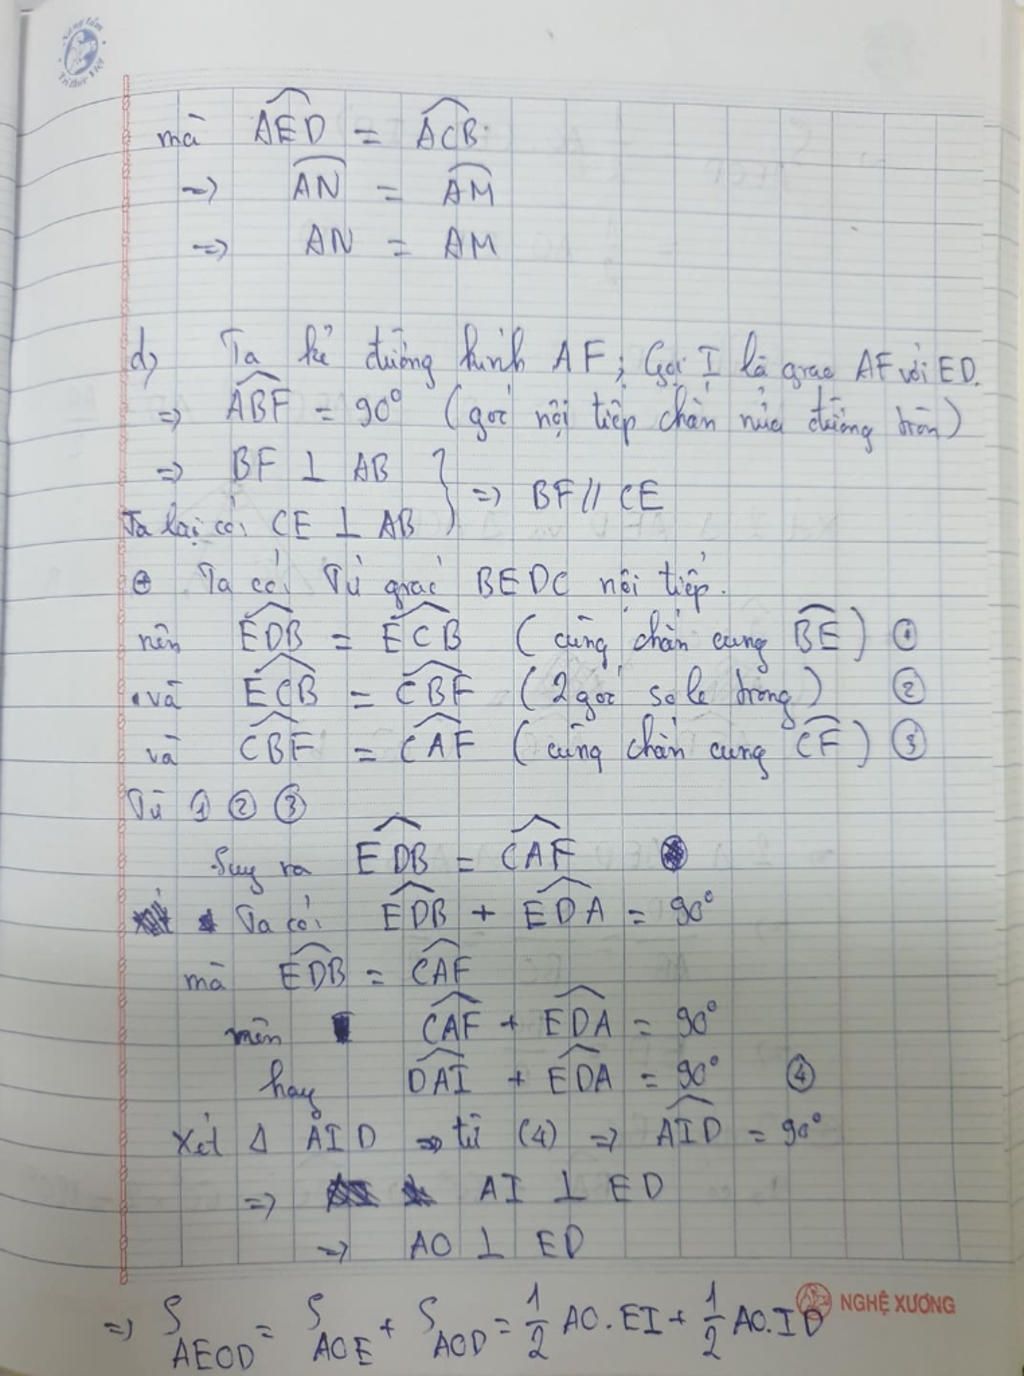 Nâng tầm
Tri thức Việt
mà \widehat{AED} = \widehat{ACB}
=> \overset{\frown}{AN} = \overset{\frown}{AM}
=> AN = AM
d) Ta kẻ đường kính AF; Gọi I là giao AF với ED.
=> \widehat{ABF} = 90° (góc nội tiếp chắn nửa đường tròn)
=> BF ⊥ AB
Ta lại có: CE ⊥ AB } => BF // CE
⊕ Ta có: Tứ giác BEDC nội tiếp.
nên \widehat{EDB} = \widehat{ECB} (cùng chắn cung \overset{\frown}{BE}) ①
và \widehat{ECB} = \widehat{CBF} (2 góc so le trong) ②
và \widehat{CBF} = \widehat{CAF} (cùng chắn cung \overset{\frown}{CF}) ③
Từ ① ② ③
Suy ra \widehat{EDB} = \widehat{CAF}
Ta có: \widehat{EDB} + \widehat{EDA} = 90°
mà \widehat{EDB} = \widehat{CAF}
nên \widehat{CAF} + \widehat{EDA} = 90°
hay \widehat{DAI} + \widehat{EDA} = 90° ④
Xét Δ AID => từ (4) => \widehat{AID} = 90°
=> AI ⊥ ED
=> AO ⊥ ED
NGHỆ XƯƠNG
=> S_{AEOD} = S_{AOE} + S_{AOD} = \frac{1}{2} AO.EI + \frac{1}{2} AO.ID